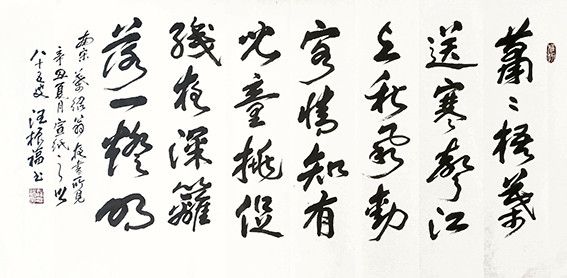 蕭〻梧葉
送寒聲江
上秋風動
客情知有
兒童挑促
織夜深籬
落一燈明
南宋葉紹翁夜書所見
辛丑夏月宣紙之鄉
八十五叟汪福書